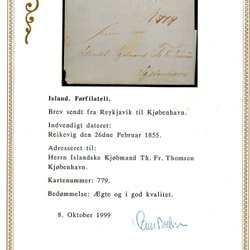 Island. Førfilateli.
Brev sendt fra Reykjavik til Kjøbenhavn.
Indvendigt dateret:
Reikevig den 26dne Februar 1855.
Adresseret til:
Herrn Islandske Kjøbmand Th. Fr. Thomsen
Kjøbenhavn.
Kartenummer: 779.
Bedømmelse: Ægte og i god kvalitet.
8. Oktober 1999